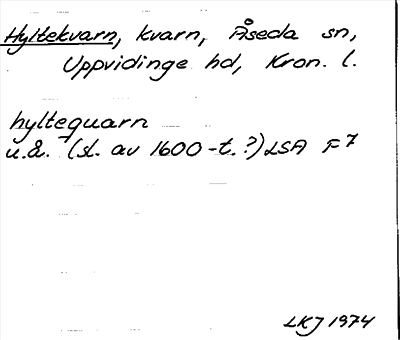 Hyltekvarn, kvarn, Åseda sn,
Uppvidinge hd, Kron. l.
hyltequarn
u.å. (sl. av 1600-t.?) LSA F7
LKJ 1974